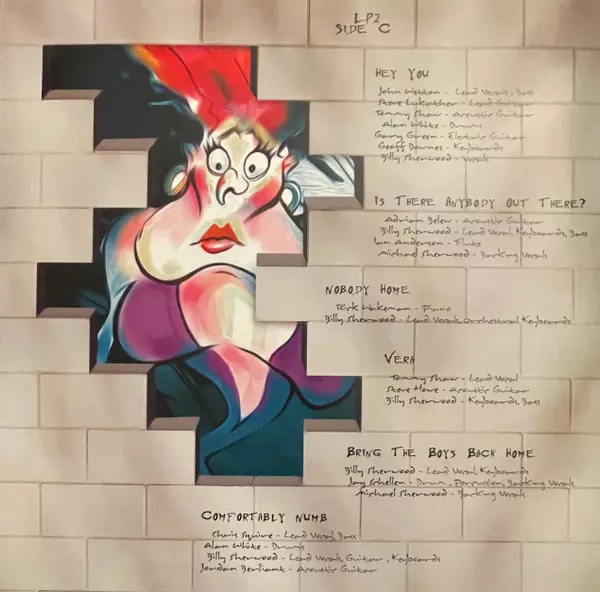 LP2
SIDE C
HEY YOU
John Wetton - Lead Vocals, Bass
Steve Lukather - Lead Guitar
Tommy Shaw - Acoustic Guitar
Alan White - Drums
Gary Green - Electric Guitar
Geoff Downes - Keyboards
Billy Sherwood - Vocals
IS THERE ANYBODY OUT THERE?
Adrian Belew - Acoustic Guitar
Billy Sherwood - Lead Vocal, Keyboards, Bass
Ian Anderson - Flute
Michael Sherwood - Backing Vocals
NOBODY HOME
Rick Wakeman - Piano
Billy Sherwood - Lead Vocals, Orchestral Keyboards
VERA
Tommy Shaw - Lead Vocal
Steve Howe - Acoustic Guitar
Billy Sherwood - Keyboards, Bass
BRING THE BOYS BACK HOME
Billy Sherwood - Lead Vocal, Keyboards
Jay Schellen - Drum, Percussion, Backing Vocals
Michael Sherwood - Backing Vocals
COMFORTABLY NUMB
Chris Squire - Lead Vocal, Bass
Alan White - Drums
Billy Sherwood - Lead Vocals, Guitar, Keyboards
Jordan Berliant - Acoustic Guitar